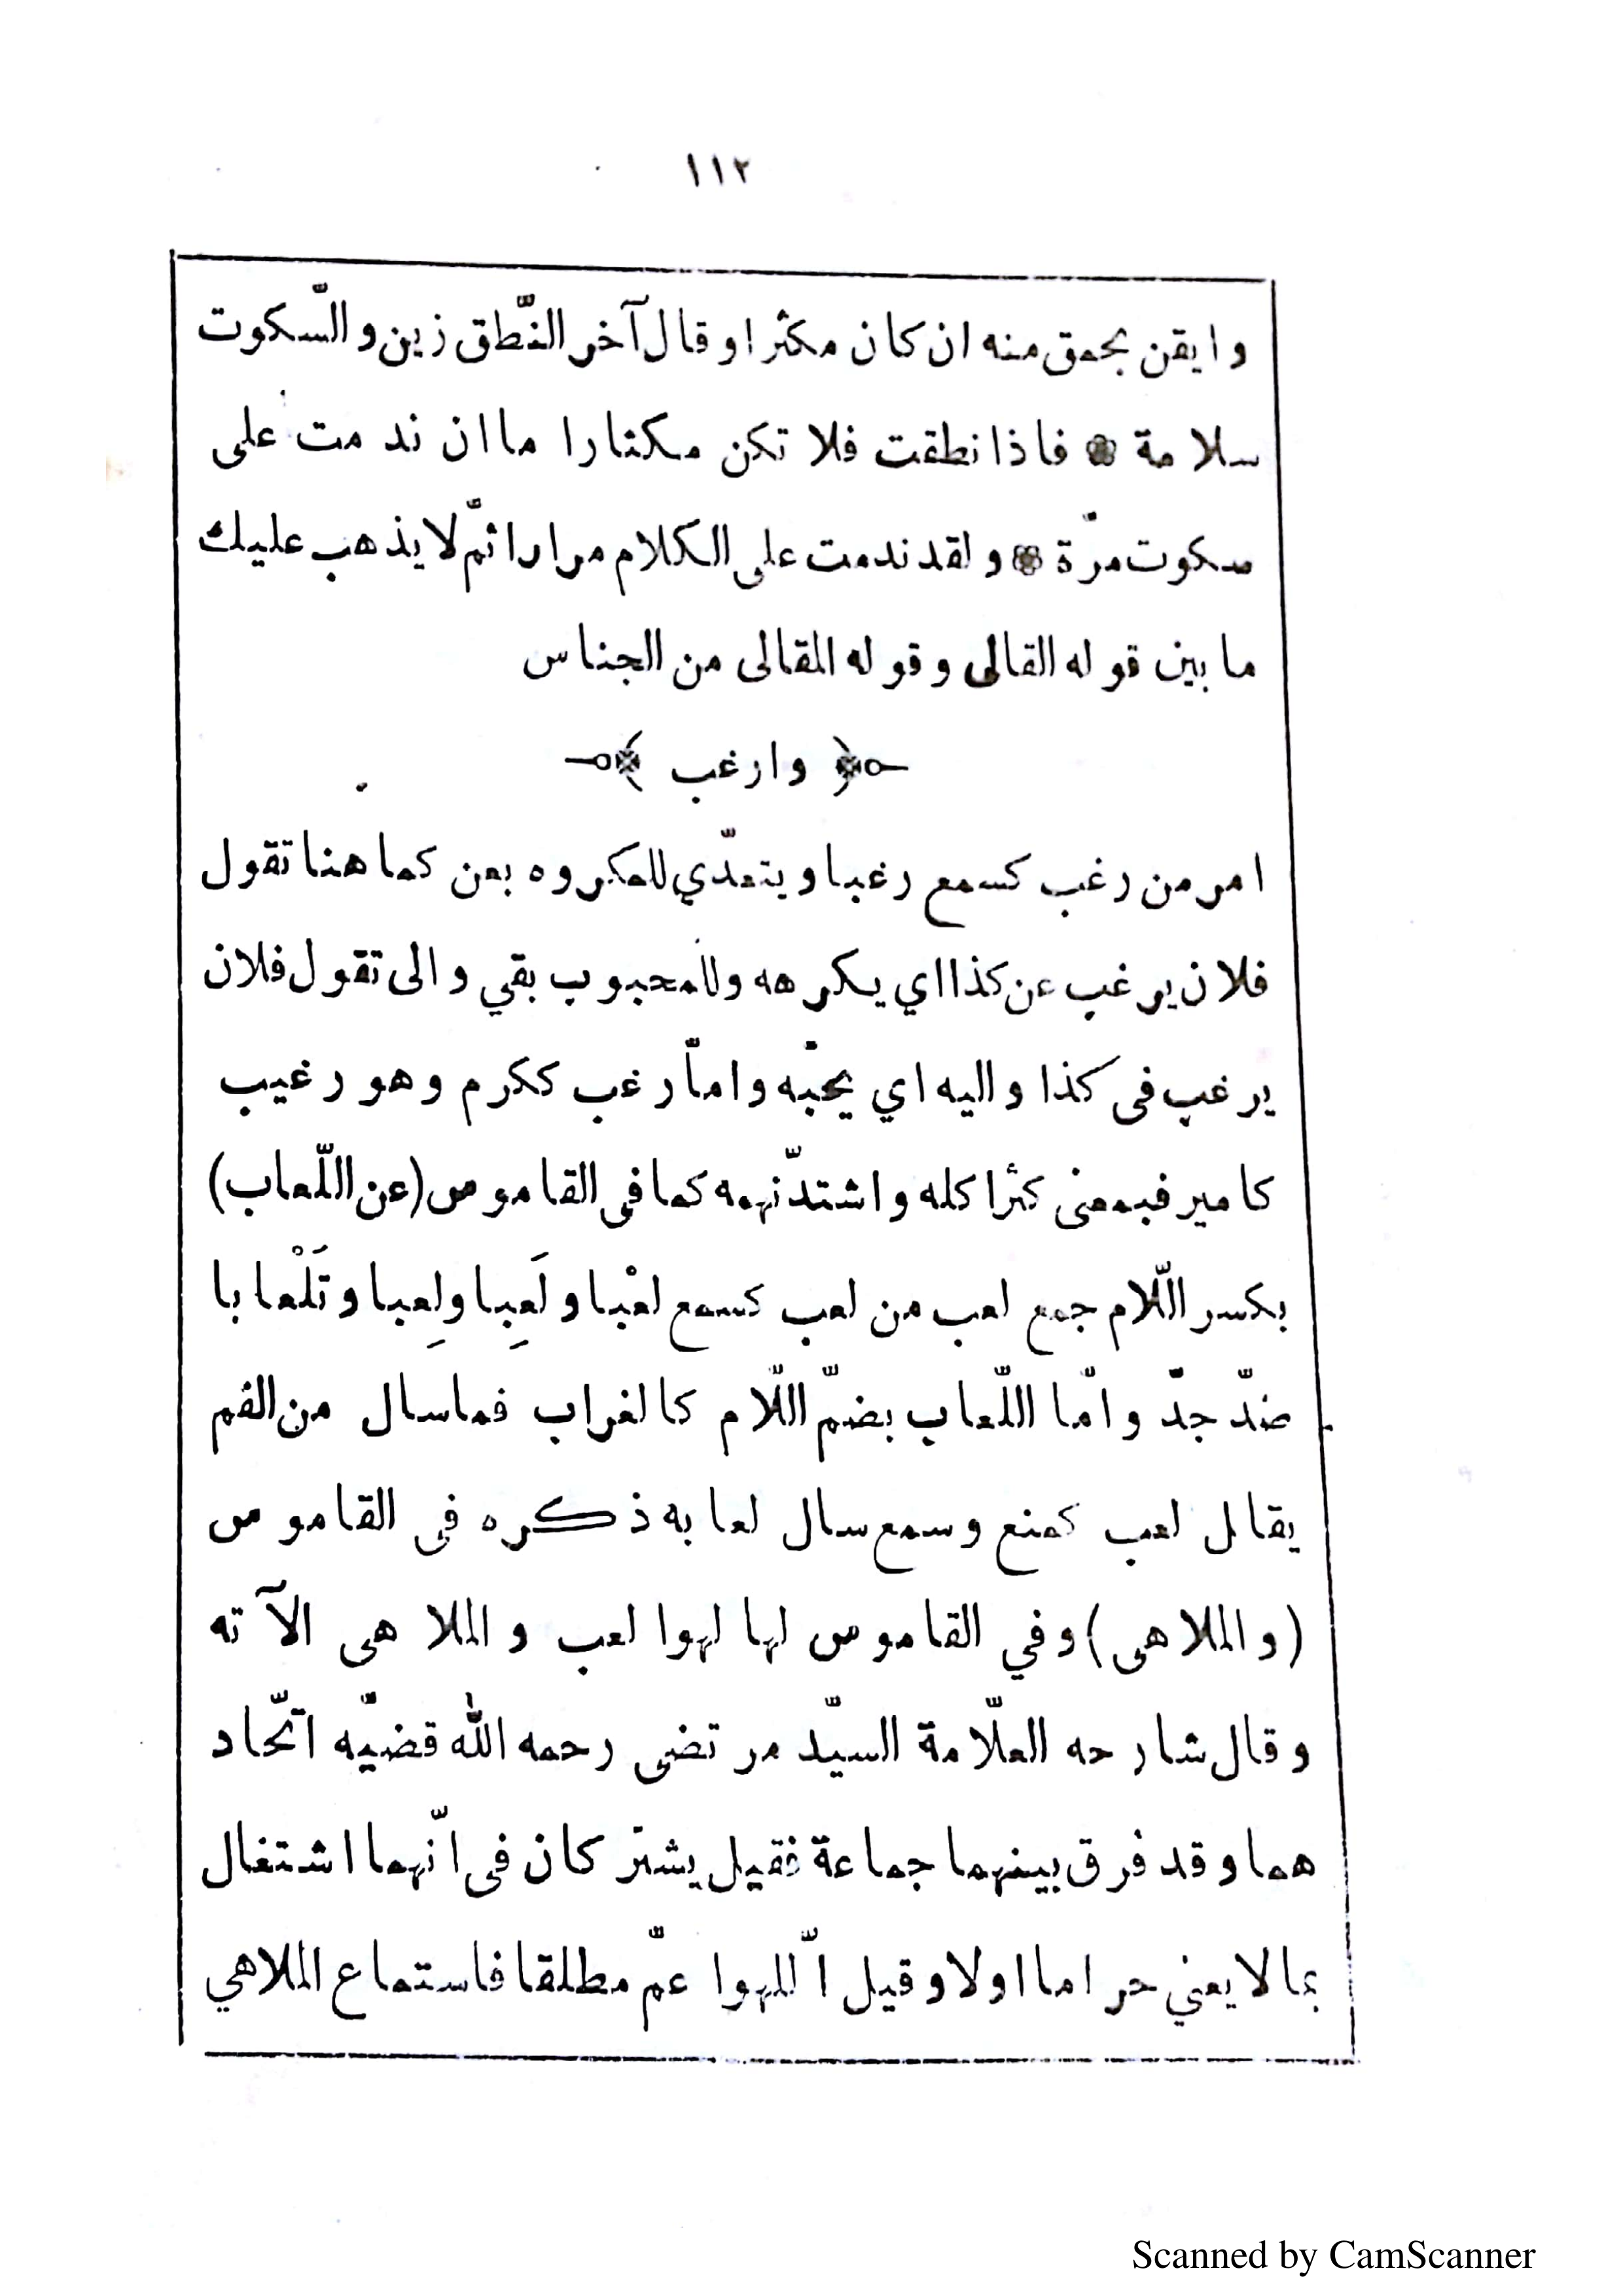 ١١٢
وايقن بحمق منه ان كان مكثرا وقال آخر النّطق زين والسّكوت
سلامة ❁ فاذا نطقت فلا تكن مكثارا ما ان ندمت على
سكوت مرّة ❁ ولقد ندمت على الكلام مرارا ثمّ لا يذهب عليك
ما بين قوله القالى وقوله المقالى من الجناس
﴿ وارغب ﴾
امر من رغب كسمع رغبا ويتعدّي للمكروه بعن كما هنا تقول
فلان يرغب عن كذا اي يكرهه وللمحبوب بقي والى تقول فلان
يرغب فى كذا واليه اي يحبّه وامّا رغب ككرم وهو رغيب
كامير فبمعنى كثر اكله واشتدّ نهمه كما فى القاموس (عن اللّعاب)
بكسر اللّام جمع لعب من لعب كسمع لعْبا ولَعِبا ولِعبا وتَلْعابا
ضدّ جدّ وامّا اللّعاب بضمّ اللّام كالغراب فما سال من الفم
يقال لعب كمنع وسمع سال لعابه ذكره فى القاموس
(والملاهى) وفي القاموس لها لهوا لعب والملاهى الآته
وقال شارحه العلّامة السيّد مرتضى رحمه الله قضيّه اتّحاد
هما وقد فرق بينهما جماعة فقيل يشتركان فى انّهما اشتغال
بما لا يعني حراما اولا وقيل اللّهوا عمّ مطلقا فاستماع الملاهي
Scanned by CamScanner